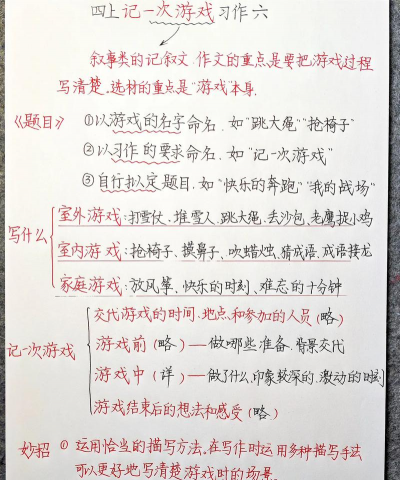 四上记一次游戏习作六
叙事类的记叙文.作文的重点,是要把游戏过程
写清楚,选材的重点是"游戏"本身.
《题目》 ①以游戏的名字命名.如"跳大绳""抢椅子"
②以习作的要求命名.如"记一次游戏"
③自行拟定题目.如"快乐的奔跑""我的战场"
室外游戏:打雪仗、堆雪人.跳大绳.去沙包.老鹰捉小鸡
写什么 室内游戏:抢椅子、摸鼻子、吹蜡烛.猜成语.成语接龙
家庭游戏:放风筝、快乐的时刻、难忘的十分钟
交代游戏的时间.地点.和参加的人员(略)
记一次游戏 游戏前(略)—做哪些准备.背景交代
游戏中(详)—做了什么,印象较深的.激动的时刻
游戏结束后的想法和感受(略)
妙招 ①运用恰当的描写方法.在写作时运用多种描写手法
可以更好地写清楚游戏时的场景.